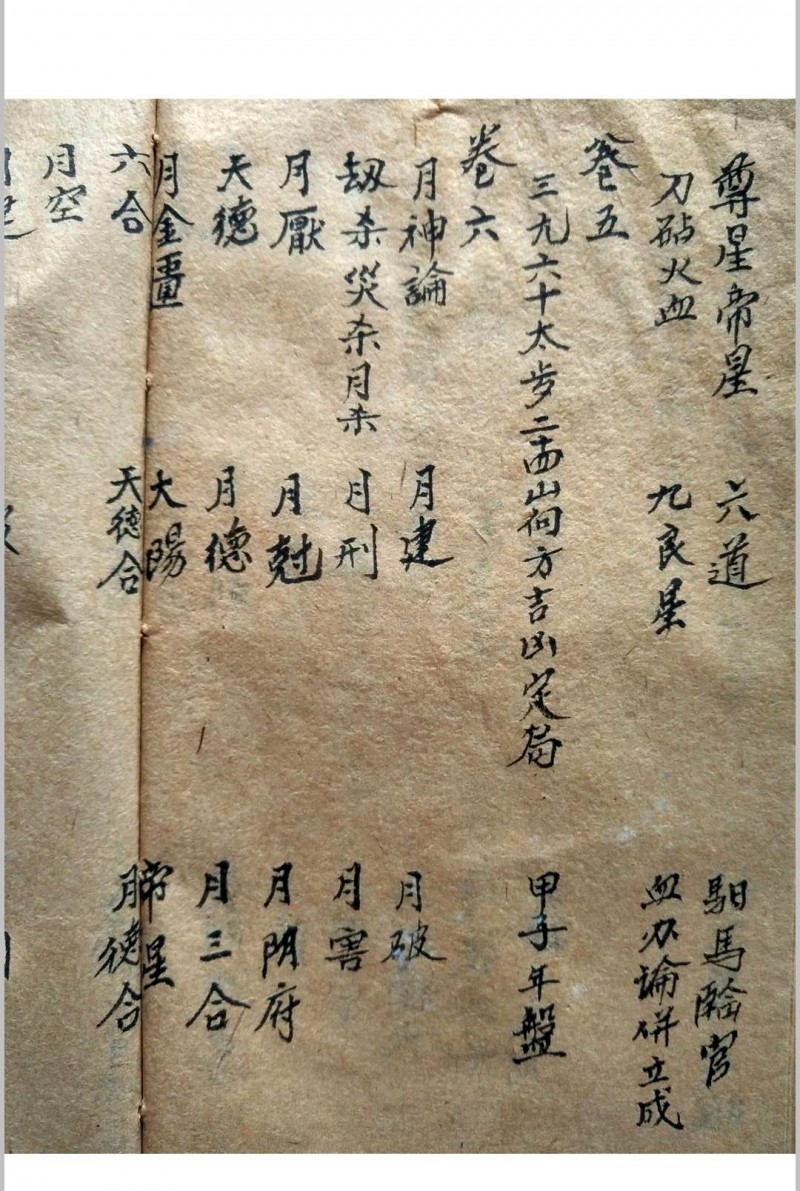 尊星帝星 六道 馹馬臨官
刀砧火血 九良星 血刃論併立成
卷五
三九六十太步二西山向方吉凶定局 甲子年盤
卷六
月神論 月建 月破
刼杀災杀月杀 月刑 月害
月厭 月尅 月阴府
天德 月德 月三合
月金畺 太陽 帝星
六合 天德合 月德合
月空